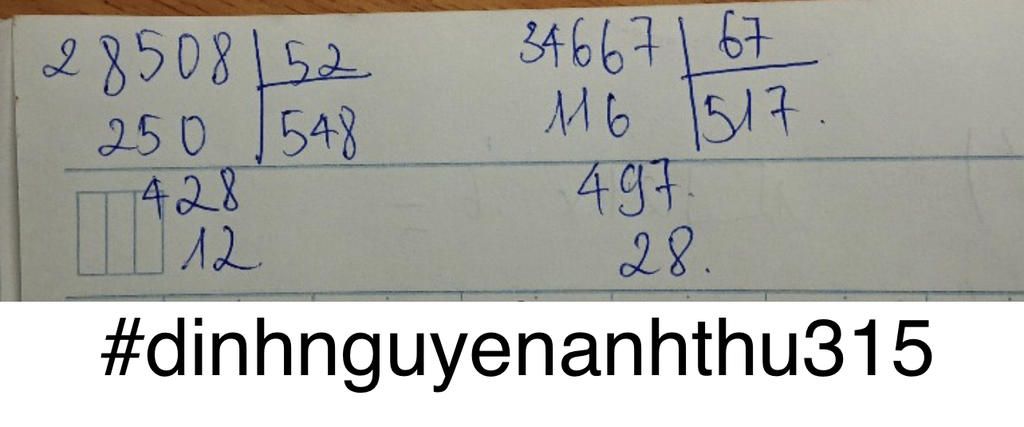 28508 52
250 548
428
12
34667 67
116 517.
497.
28.
#dinhnguyenanhthu315